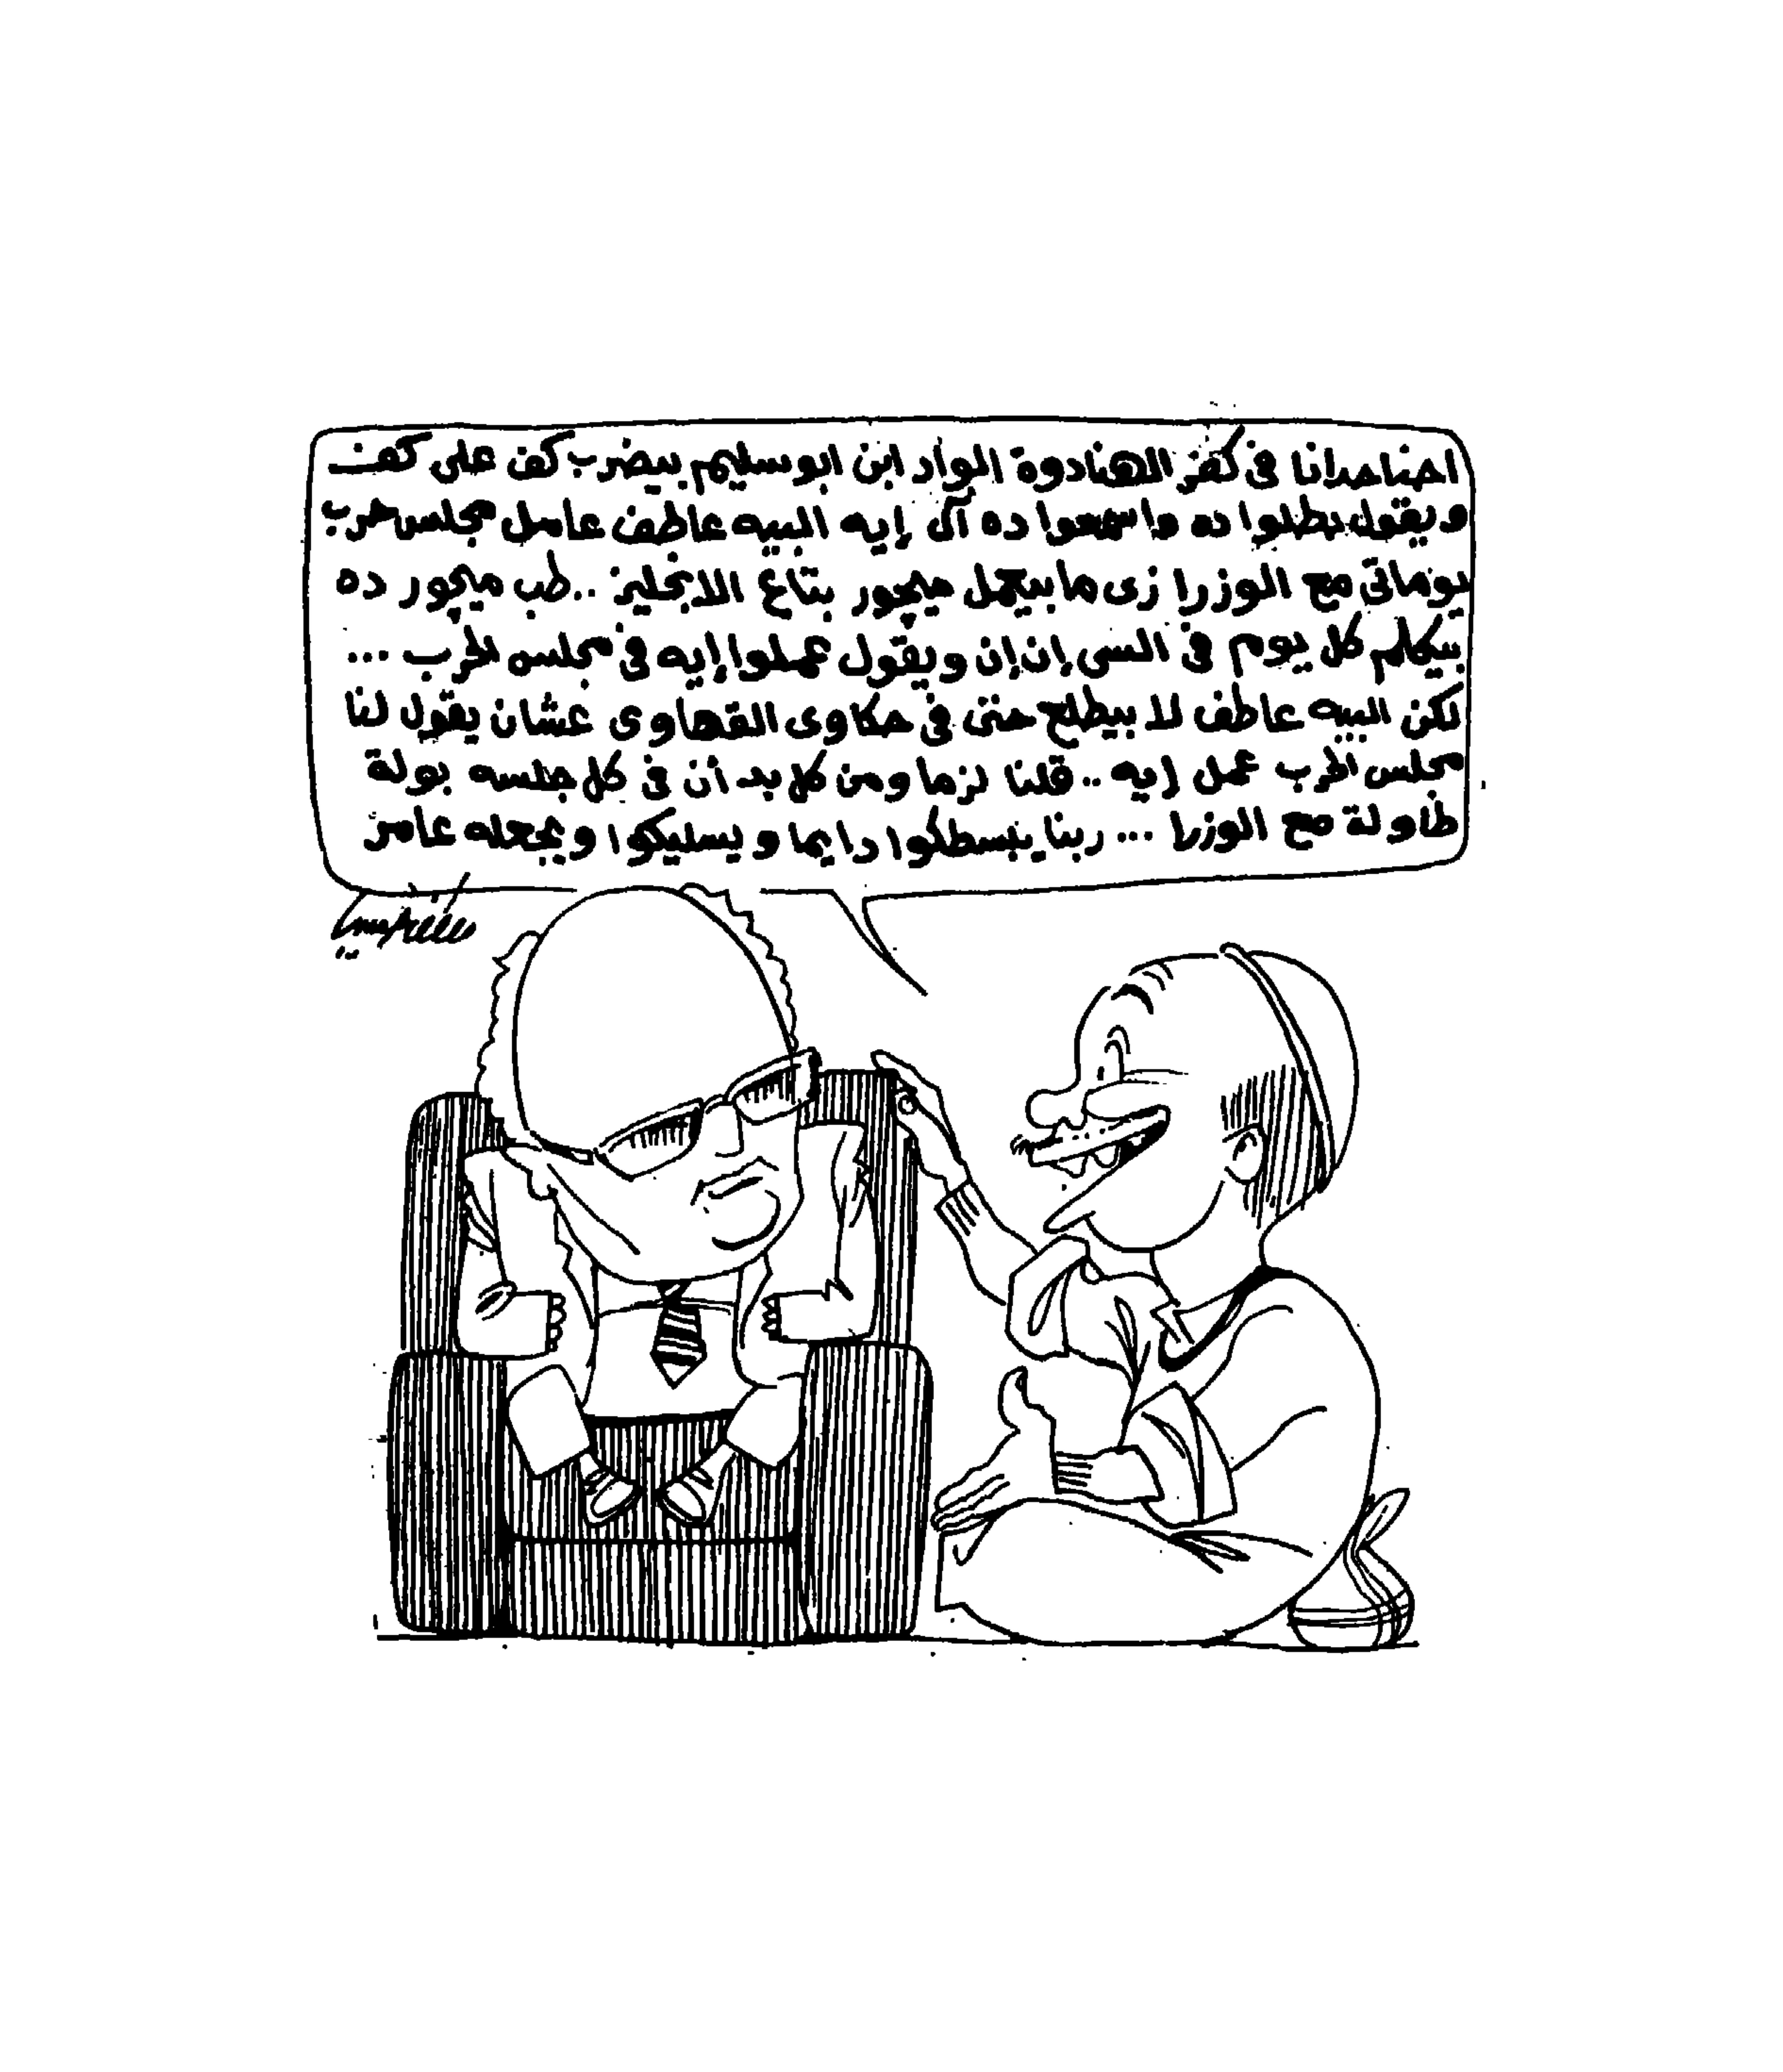 احنا حدانا فى كفر الهنادوة الواد ابن ابو سليم بيضرب كف على كف
ويقول بطلوا ده واسمعوا ده آل إيه البيه عاطف عامل مجلس حرب
يوماتى مع الوزرا زى ما بيعمل ميجور بتاع الانجليز .. طب ميجور ده
بيكلم كل يوم فى السى إن إن ويقول عملوا إيه فى مجلس الحرب ...
لكن البيه عاطف لا بيطلع حتى فى حكاوى القهاوى عشان يقول لنا
مجلس الحرب عمل إيه .. قلنا لزما ومن كل بد أن فى كل جلسه بولة
طاولة مع الوزرا ... ربنا يبسطكوا دايما ويسليكوا ويجعله عامر